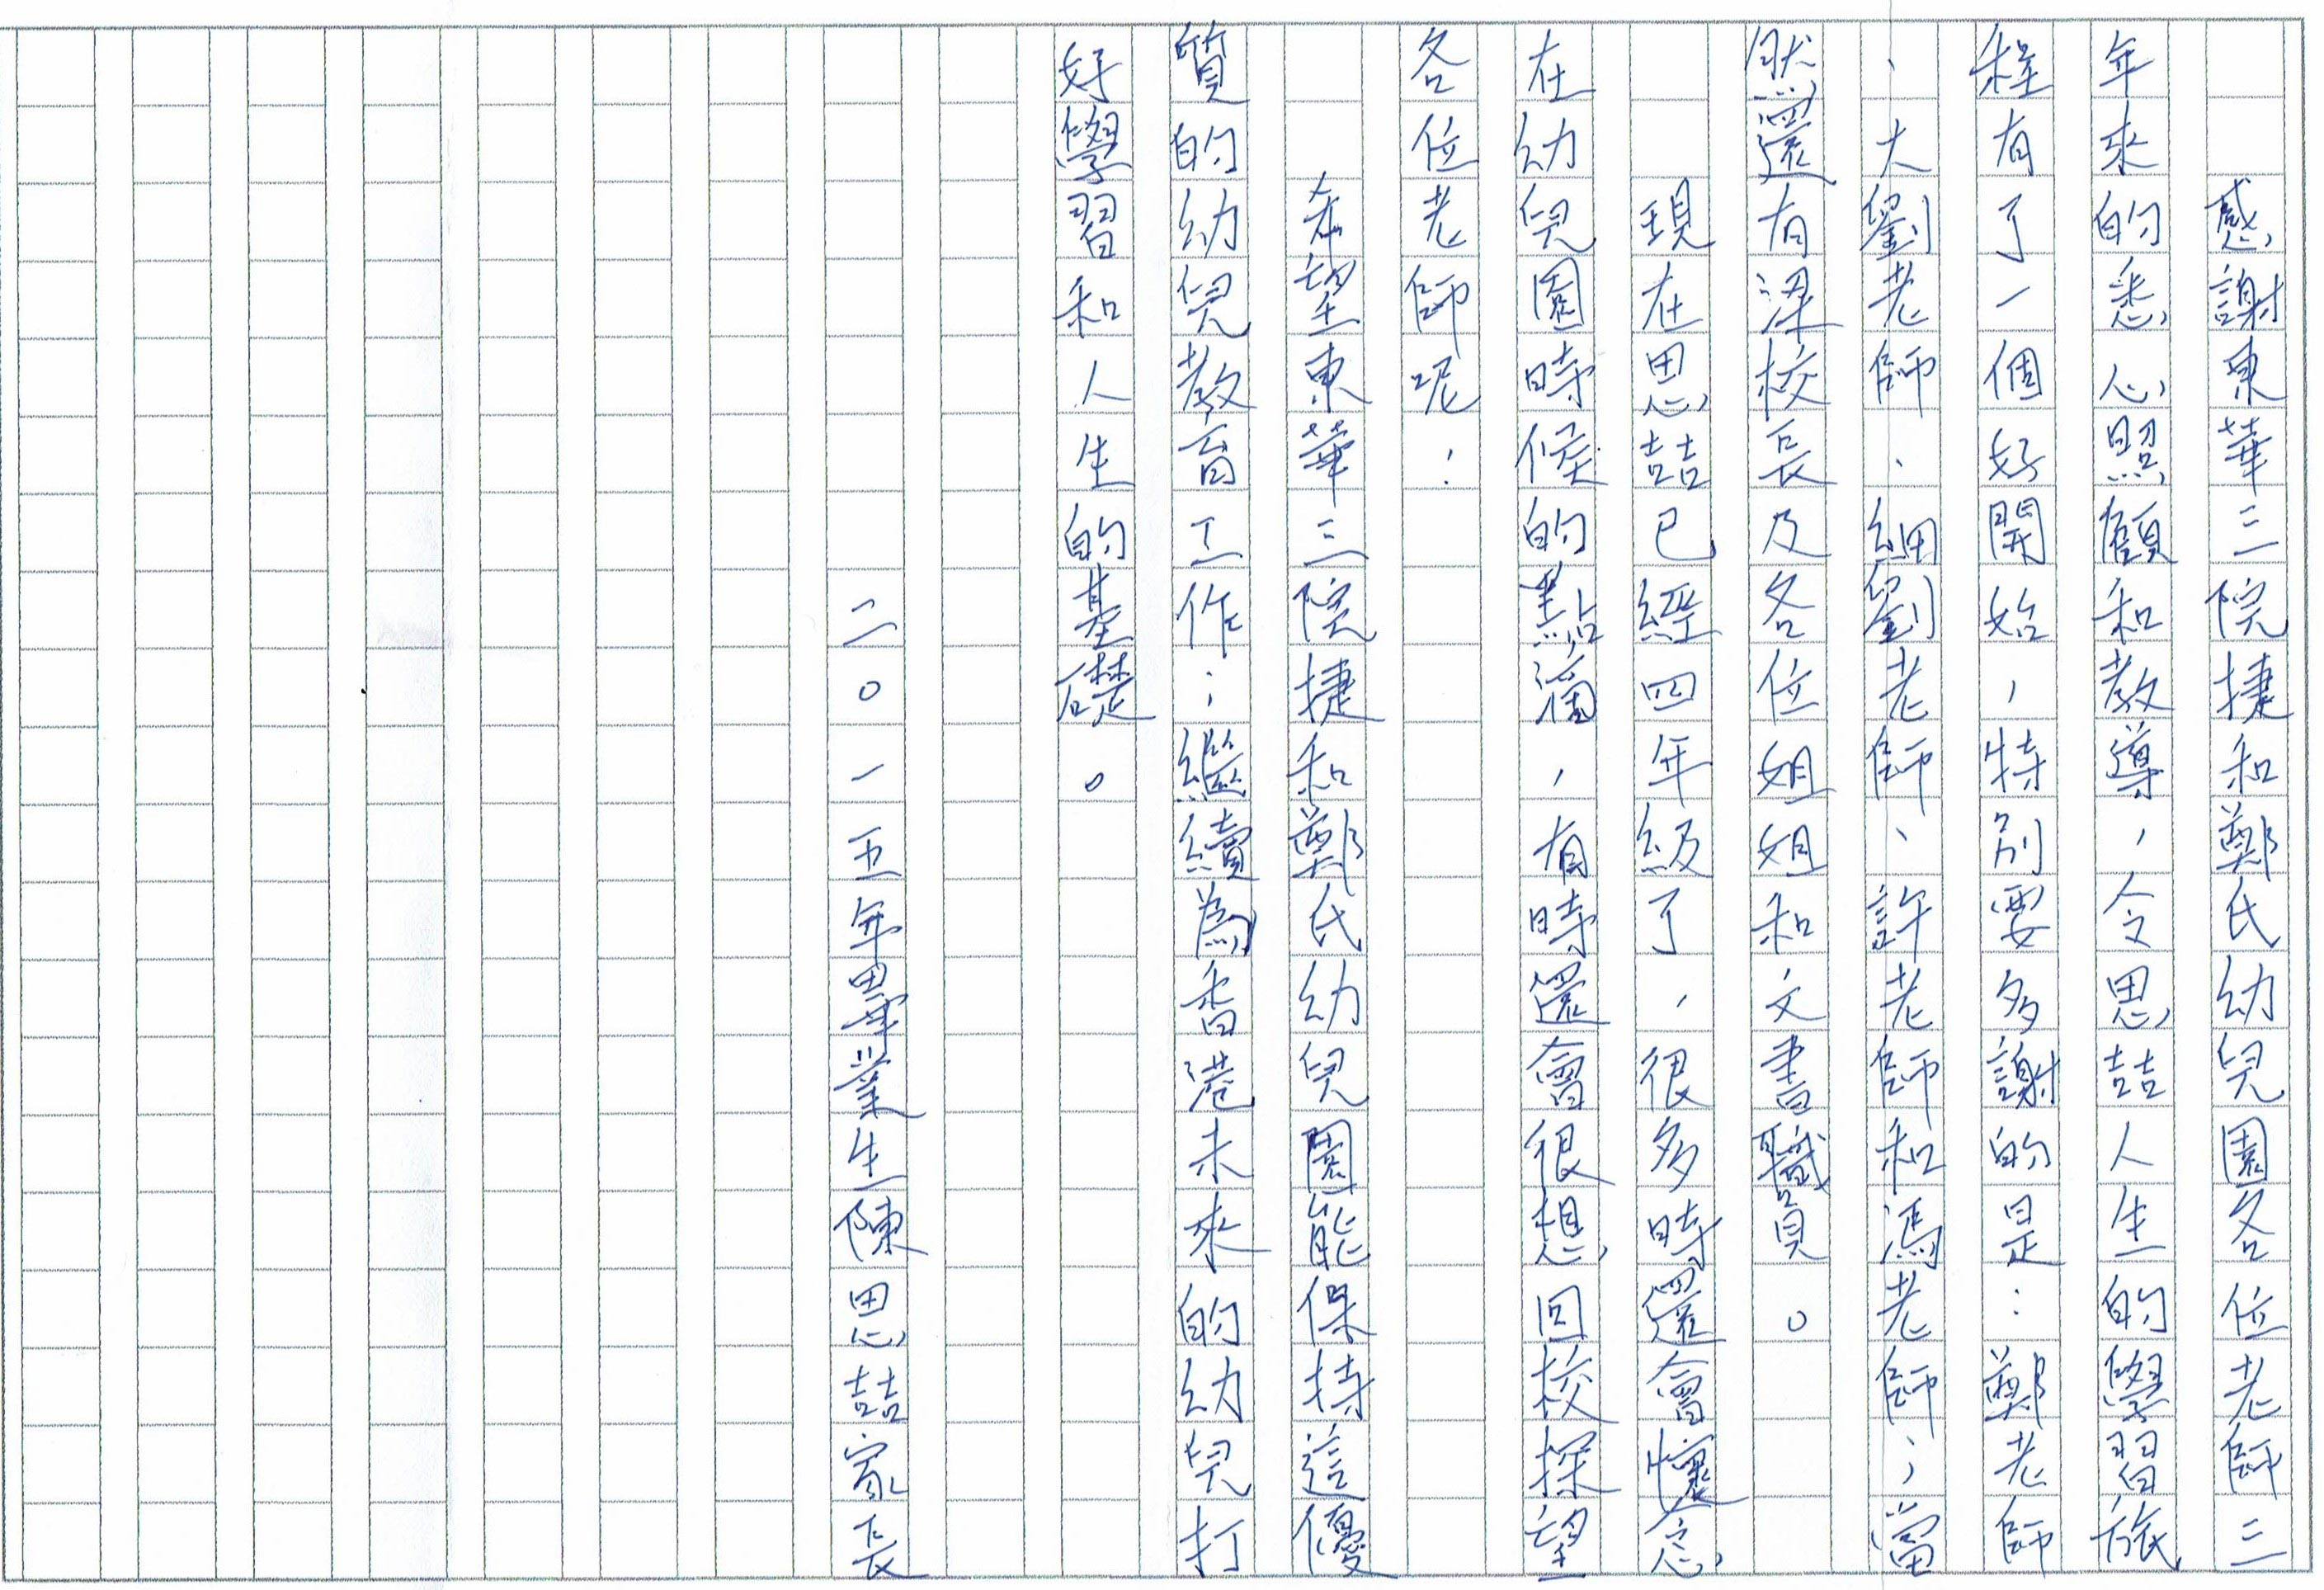 感謝東華三院捷和鄭氏幼兒園各位老師三
年來的悉心照顧和教導，令思喆人生的學習旅
程有了一個好開始，特別要多謝的是：鄭老師
、大劉老師、細劉老師、許老師和馮老師；當
然還有梁校長及各位姐姐和文書職員。
現在思喆已經四年級了，很多時還會懷念
在幼兒園時候的點滴，有時還會很想回校探望
各位老師呢！
希望東華三院捷和鄭氏幼兒園能保持這優
質的幼兒教育工作；繼續為香港未來的幼兒打
好學習和人生的基礎。
二○一五年畢業生陳思喆家長